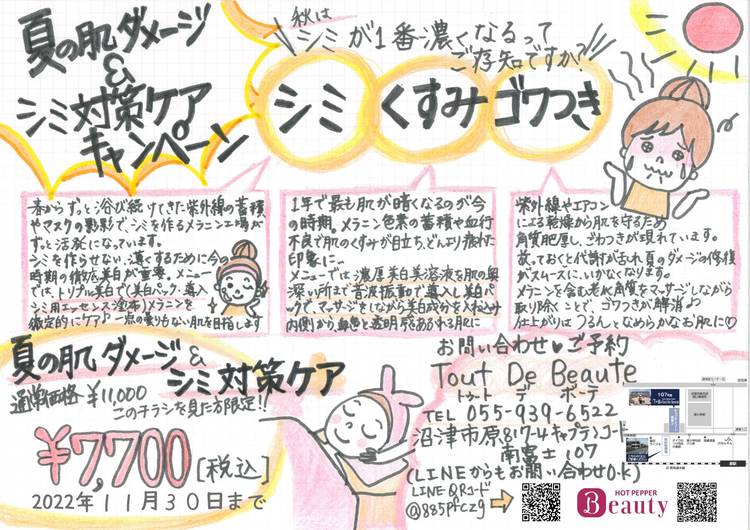 夏の肌ダメージ
&
シミ対策ケア
キャンペーン
秋は
シミが1番濃くなるって
ご存知ですか?
シミ くすみ ゴワつき
春からずっと浴び続けてきた紫外線の蓄積
やマスクの影響で、シミを作るメラニン工場が
ずっと活発になっています。
シミを作らせない、濃くするために今の
時期の徹底美白が重要。メニュー
では、トリプル美白で(美白パック・導入
シミ用エッセンス塗布)メラニンを
徹底的にケア♪一点の曇りもない肌を目指します
1年で最も肌が暗くなるのが今
の時期。メラニン色素の蓄積や血行
不良で肌のくすみが目立ち、どんより疲れた
印象に…
メニューでは濃厚美白美容液を肌の奥
深い所まで音波振動で導入し美白パッ
クで、マッサージをしながら美白成分を入れ込み
内側から、血色と透明感あふれる肌に
紫外線やエアコン
による乾燥から肌を守るため
角質肥厚し、ごわつきが現れています。
放っておくと代謝が乱れ夏のダメージの修復
がスムーズにいかなくなります。
メラニンを含む老水角質をマッサージしながら
取り除くことで、ゴワつきが解消♪
仕上がりはつるんとなめらかなお肌に♡
夏の肌ダメージ&
シミ対策ケア
通常価格 ¥11,000
このチラシを見た方限定!!
¥7,700[税込]
2022年11月30日まで
お問い合わせ♥ご予約
Tout De Beaute
トゥート デ ボーテ
TEL 055-939-6522
沼津市原817-4キャプテンコート
南富士107
(LINEからもお問い合わせO.K)
LINE QRコード
HOT PEPPER
Beauty